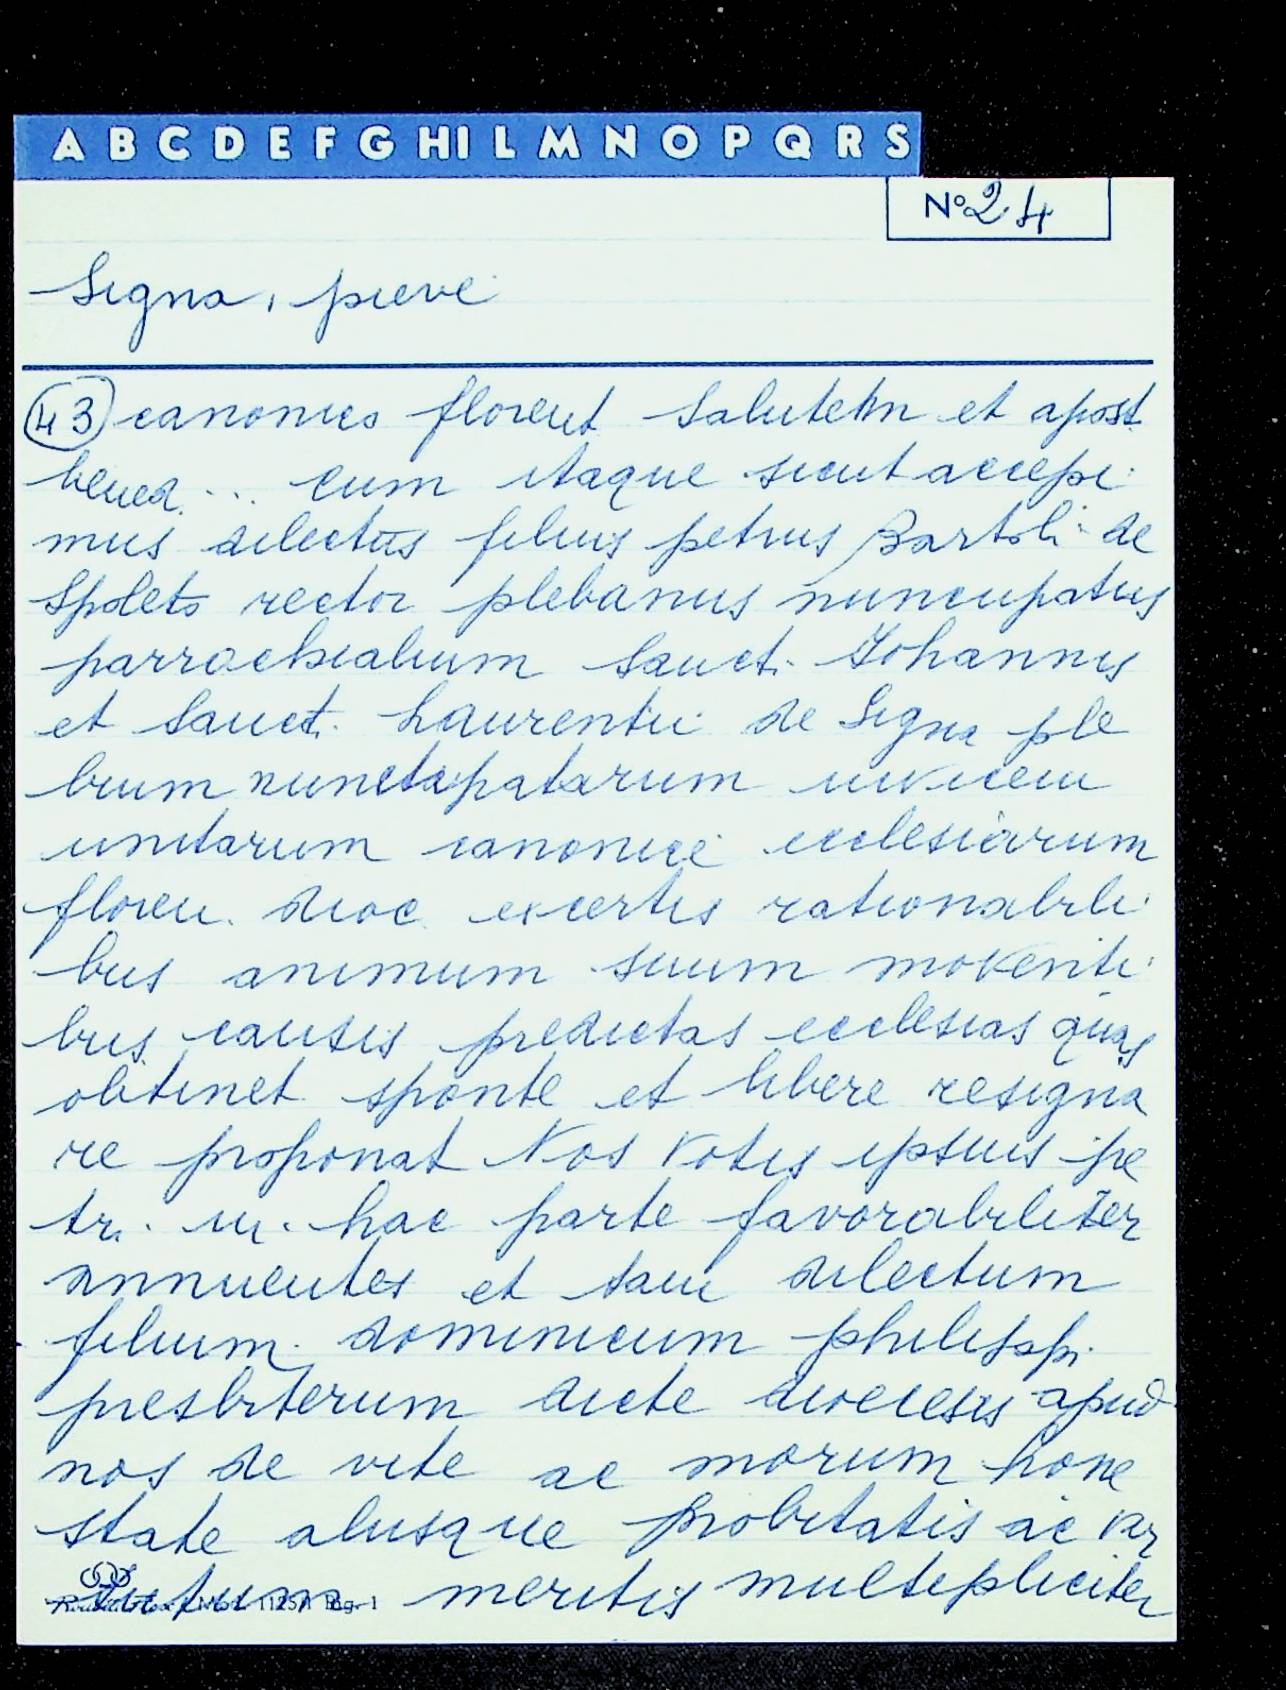 A B C D E F G H I L M N O P Q R S
N° 24
Signa, pieve
43 canonico florent salutem et apost.
bened. ... cum itaque sicut accepi-
mus dilectus filius petrus Bartoli de
Spoleto rector plebanus nuncupatus
parrochialium Sanct. Johannis
et Sanct. Laurentii de Signa ple
bium nuncupatarum invicem
unitarum canonice ecclesiarum
floren. dioc. ex certis rationabili-
bus animum suum moventi-
bus causis predictas ecclesias quas
obtinet sponte et libere resigna
re proponat Nos votis ipsius pe
tri in hac parte favorabiliter
annuentes et tam dilectum
filium dominicum philippi
presbiterum dicte diocesis apud
nos de vite ac morum hone
state aliisque probitatis ac vir
tutum meritis multipliciter